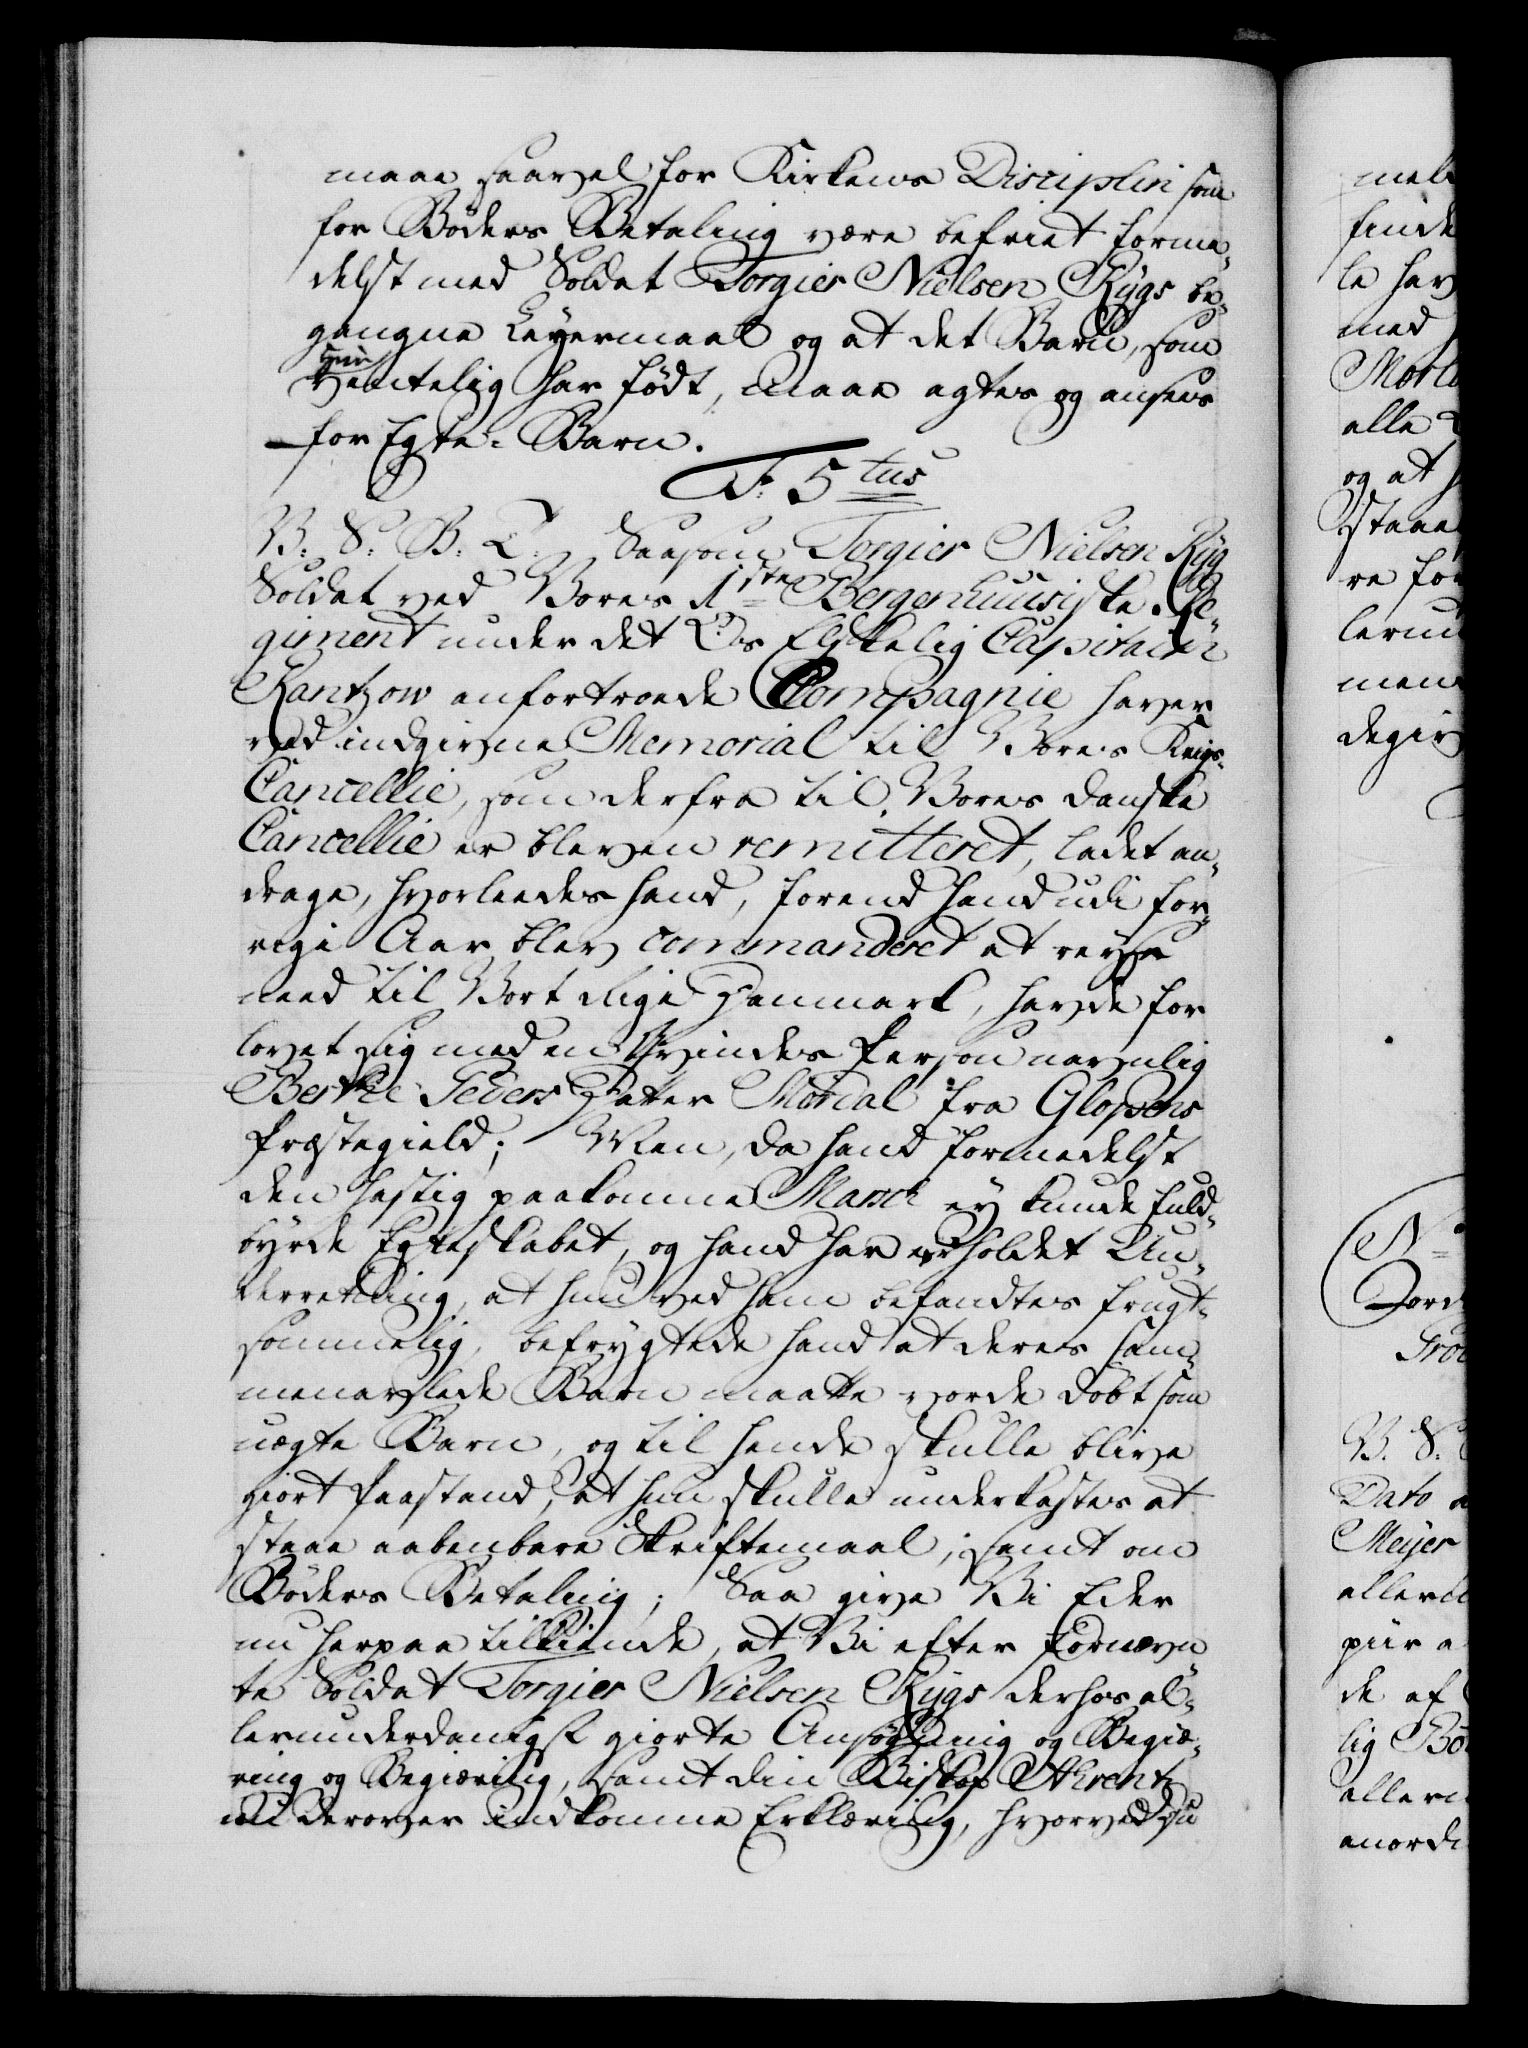 maae saavel for Kirkens Disciplin som
for Bøders Betaling være befriet forme¸
delst med Soldat Torgier Nielsen Rÿgs be¸
gangne Leyermaal og at det Barn, som
hun
ventelig har født, maae agtes og ansees
for Egte-Barn.
F: 5tus
V: S: G: T: Saasom Torgier Nielsen Rÿg
Soldat ved Vores 1ste Bergenhuusiske Re¸
giment under det Os Elskelig Capitain
Rantzow anfortroede Compagnie haver
ved indgivne Memorial til Vores Krigs¸
Cancellie, som derfra til Vores danske
Cancellie er bleven remitteret, ladet an¸
drage, hvorleedes hand, forend hand udi for¸
rige Aar blev commanderet at reyse
need til Vort Rige Danmark, havde for
lovet sig med en Qvindes Person navnlig
Berthe Peders Datter Mordal fra Glopens
Præstegield; Men, da hand formedelst
den hastig paakomne March ey kunde fuld¸
byrde Egteskabet, og hand har erholdet Un¸
derretning, at hun ved ham befandtes frugt¸
sommelig, befrygtede hand at deres sam¸
menavlede Barn maatte vorde døbt som
uægte Barn, og til hende skulle blive
giort Paastand, at hun skulle underkastes at
staae aabenbare Skriftemaal, samt om
Bøders Betaling; Saa give Vi Eder
nu herpaa tilkiende, at Vi efter fornævn
te Soldat Torgier Nielsen Rÿgs derhos al¸
lerunderdanigst giorte Ansøgning og Begiæ¸
ring og Begiæring, samt din Biskop Ahrentz
derover indkomne Erklæring, hvorved du
mel
finde
le hav
med
Mort
alle
og at
staae
re for
lerun
men
degiv
No
Jord
Tro
V. S:
Dato a
Meyer
allerd
piir a
de af
lig Bø
allern
anord